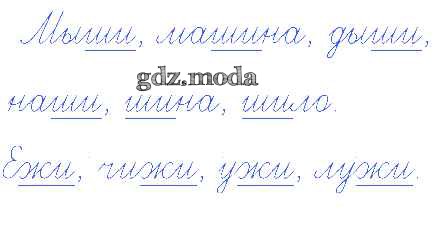 Мыши, машина, дыши,
gdz.moda
наши, шина, шило.
Ежи, чижи, ужи, лужи.